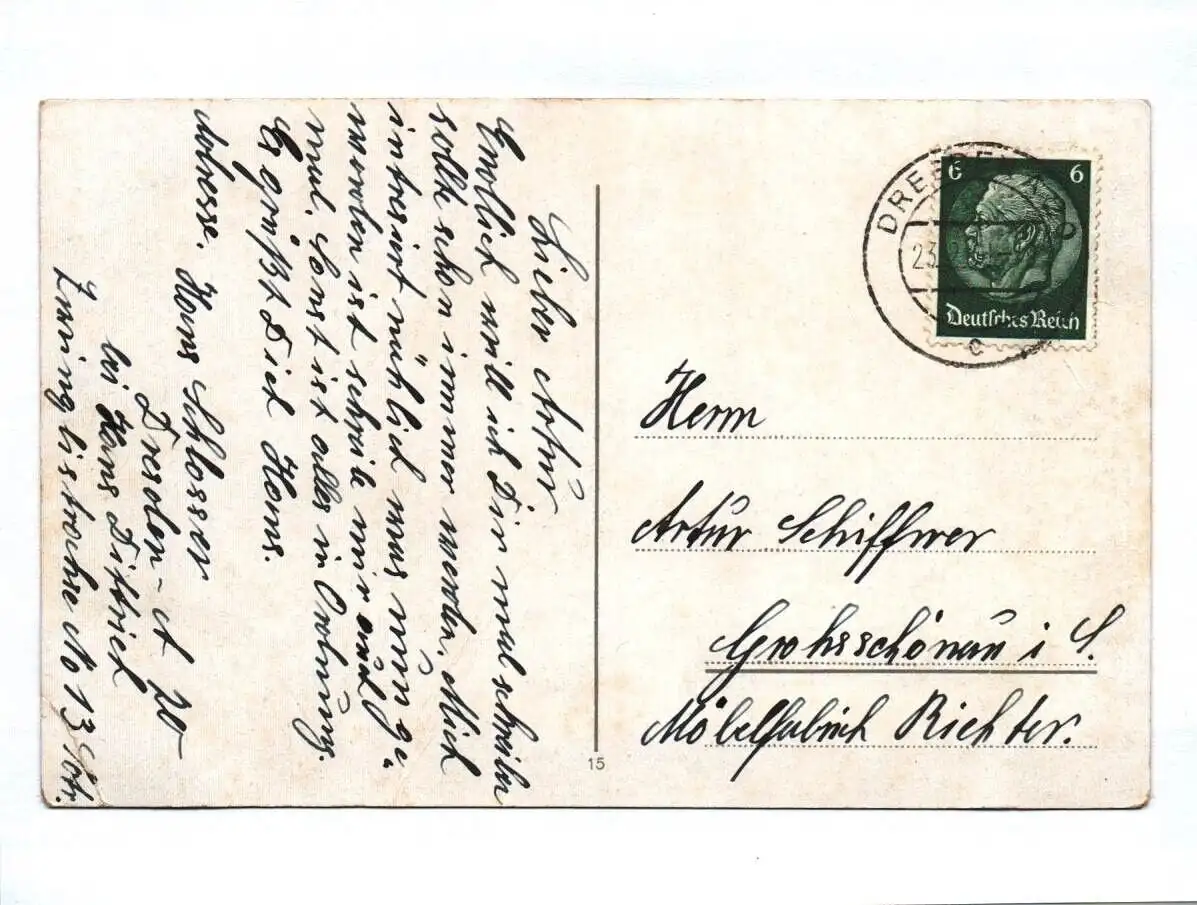 Lieber Artur
Endlich will ich Dir mal schreiben
sollte schon immer werden. Mich
intresirt nühlich was nun ge-
worden ist schreibe mir auch
mal. Sonst ist alles in Ordnung.
Es grüßt Dich Hans.
Adresse. Hans Schlosser
Dresden-A 20
bei Hans Dittrich
Zwinglistrasse No 13
DRESDEN A
23
c
6 6
Deutsches Reich
Herrn
Artur Schiffner
Grohsschönau i S.
Möbelfabrick Richter.
15